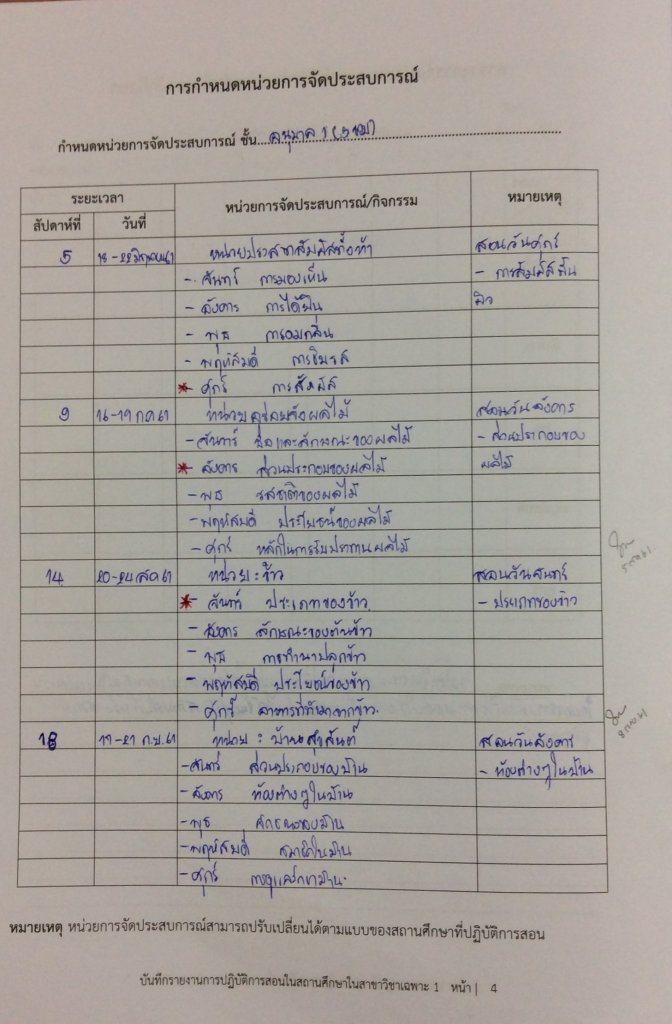 การกำหนดหน่วยการจัดประสบการณ์
กำหนดหน่วยการจัดประสบการณ์ ชั้น อนุบาล 1
ระยะเวลา หน่วยการจัดประสบการณ์/กิจกรรม หมายเหตุ
สัปดาห์ที่ วันที่
5 18-22 มิถุนายน 61 หน่วยประสาทสัมผัสทั้งห้า สอนวันศุกร์
- จันทร์ การมองเห็น - การสัมผัสพื้น
- อังคาร การได้ยิน ผิว
- พุธ การดมกลิ่น
- พฤหัสบดี การชิมรส
* ศุกร์ การสัมผัส
9 16-19 กค 61 หน่วย ผลไม้ สอนวันอังคาร
- จันทร์ ชื่อและลักษณะของผลไม้ - ส่วนประกอบของ
* อังคาร ส่วนประกอบของผลไม้ ผลไม้
- พุธ รสชาติของผลไม้
- พฤหัสบดี ประโยชน์ของผลไม้
- ศุกร์ หลักในการรับประทานผลไม้
14 20-24 สค 61 หน่วย : ข้าว สอนวันจันทร์
* จันทร์ ประเภทของข้าว - ประเภทของข้าว
- อังคาร ลักษณะของต้นข้าว
- พุธ การทำนาปลูกข้าว
- พฤหัสบดี ประโยชน์ของข้าว
- ศุกร์ อาหารที่ทำมาจากข้าว.
18 17-21 ก.ย. 61 หน่วย : บ้านสุขสันต์ สอนวันอังคาร
- จันทร์ ส่วนประกอบของบ้าน - ห้องต่างๆในบ้าน
- อังคาร ห้องต่างๆในบ้าน
- พุธ ลักษณะของบ้าน
- พฤหัสบดี สมาชิกในบ้าน
- ศุกร์ การดูแลรักษาบ้าน.
หมายเหตุ หน่วยการจัดประสบการณ์สามารถปรับเปลี่ยนได้ตามแบบของสถานศึกษาที่ปฏิบัติการสอน
บันทึกรายงานการปฏิบัติการสอนในสถานศึกษาในสาขาวิชาเฉพาะ 1 หน้า | 4